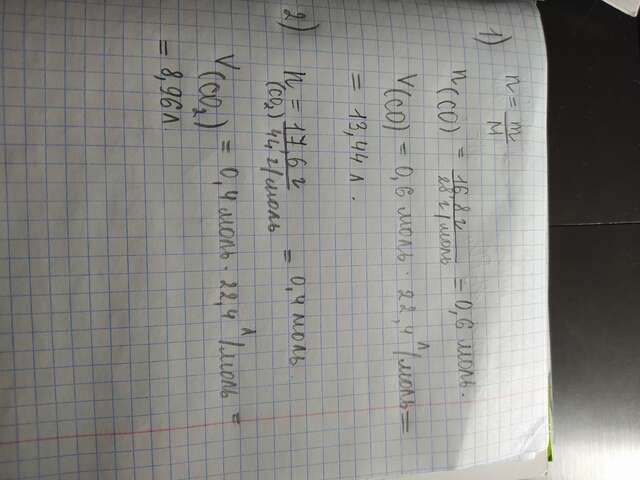 1) n = m/M
n(CO) = 16,8 г / 28 г/моль = 0,6 моль.
V(CO) = 0,6 моль · 22,4 л/моль =
= 13,44 л.
2) n(CO₂) = 17,6 г / 44 г/моль = 0,4 моль.
V(CO₂) = 0,4 моль · 22,4 л/моль =
= 8,96 л